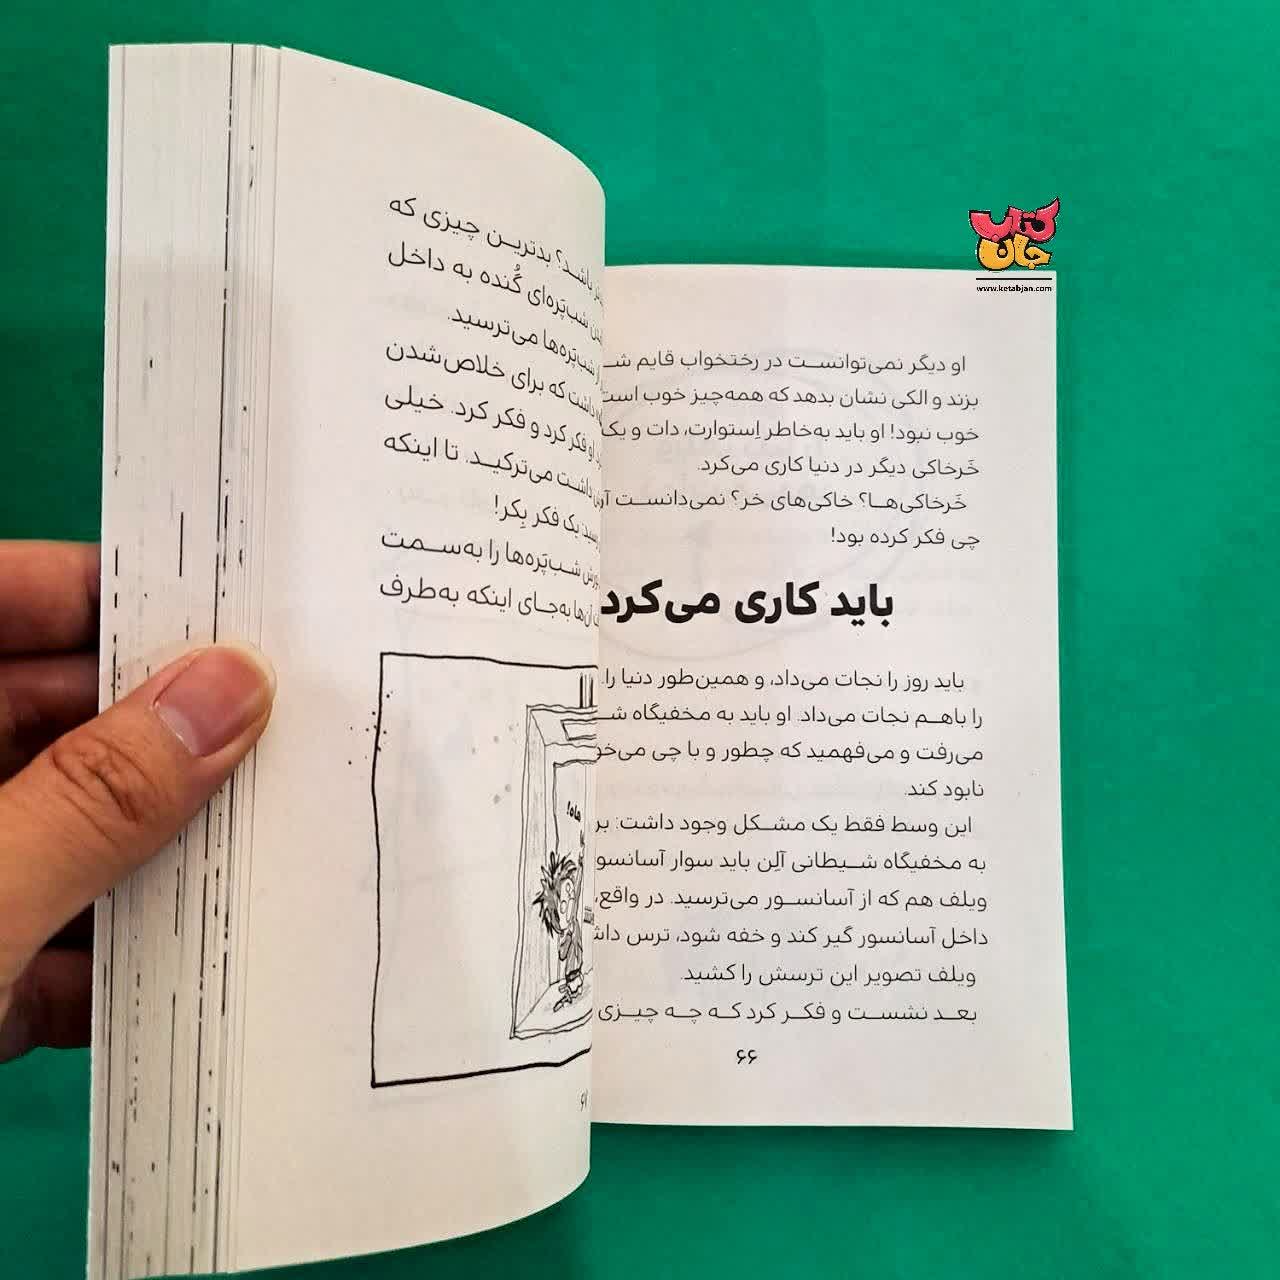 کتاب
جان
www.ketabjan.com
او دیگر نمی‌توانست در رختخواب قایم
بزند و الکی نشان بدهد که همه‌چیز خوب است
خوب نبود! او باید به‌خاطر اِستوارت، دات و یک
خَرخاکی دیگر در دنیا کاری می‌کرد.
خَرخاکی‌ها؟ خاکی‌های خر؟ نمی‌دانست
چی فکر کرده بود!
باید کاری می‌کرد
باید روز را نجات می‌داد، و همین‌طور دنیا را.
را باهم نجات می‌داد. او باید به مخفیگاه
می‌رفت و می‌فهمید که چطور و با چی
نابود کند.
این وسط فقط یک مشکل وجود داشت:
به مخفیگاه شیطانی آلِن باید سوار
ویلف هم که از آسانسور می‌ترسید. در واقع،
داخل آسانسور گیر کند و خفه شود، ترس
ویلف تصویر این ترسش را کشید.
بعد نشست و فکر کرد که چه چیزی
۶۶
باشد؟ بدترین چیزی که
شب‌پَره‌ای گُنده به داخل
شب‌پَره‌ها می‌ترسید.
داشت که برای خلاص‌شدن
او فکر کرد و فکر کرد. خیلی
داشت می‌ترکید. تا اینکه
یک فکر بِکر!
شب‌پَره‌ها را به‌سمت
آن‌ها به‌جای اینکه به‌طرف